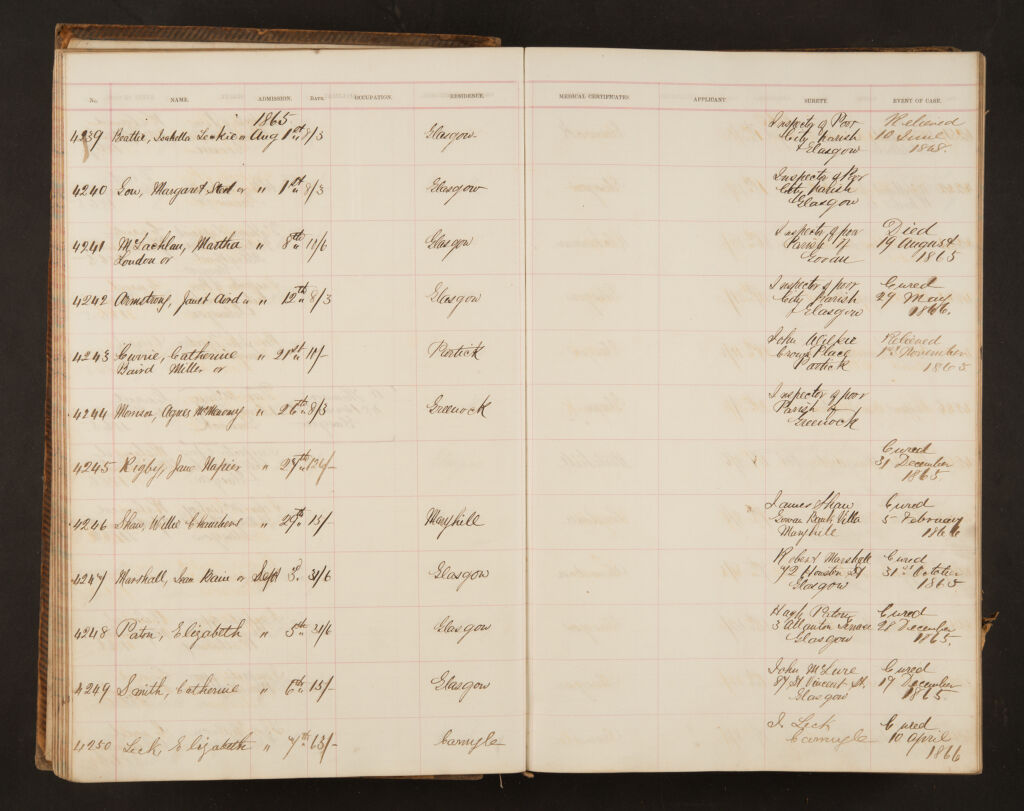 No. NAME. ADMISSION. RATE. OCCUPATION. RESIDENCE. MEDICAL CERTIFICATES. APPLICANT. SURETY. EVENT OF CASE.
1865
4239 Beattie, Isabella Leckie or Aug 1st " 8/3 Glasgow Inspector of Poor Relieved
City Parish 10 June
Glasgow 1868.
4240 Gow, Margaret or " 1st " 8/3 Glasgow Inspector of Poor
City Parish
Glasgow
4241 McLachlan, Martha " 8th " 12/6 Glasgow Inspector of poor Died
London or Parish of 19 August
Govan 1865
4242 Armstrong, Janet Aird " " 12th " 8/3 Glasgow Inspector of poor Cured
City Parish 29 May
Glasgow 1866.
4243 Currie, Catherine " 21st " Partick John Wilkie Relieved
Baird Miller or Crown Place 1st November
Partick 1865
4244 Agnes " 26th " 8/3 Greenock Inspector of poor
Parish of
Greenock
4245 Rigby, Jane Napier " " Cured
31 December
1865.
4246 Shaw, Willie " 29th " 15/- Maryhill James Shaw Cured
Villa 5 February
Maryhill 1866
4247 Marshall, Jean Bain or Sept 31/6 Glasgow Robert Marshall Cured
72 Houston St 31st October
Glasgow 1865
4248 Paton, Elizabeth " 5th " 31/6 Glasgow Hugh Paton Cured
3 Allanton Terrace 28 December
Glasgow 1865.
4249 Smith, Catherine " 6th " 15/- Glasgow John McLure Cured
St Vincent St. 19 December
Glasgow 1865.
4250 Leck, Elizabeth " 7th " 15/- Carmyle J. Leck Cured
Carmyle 10 April
1866